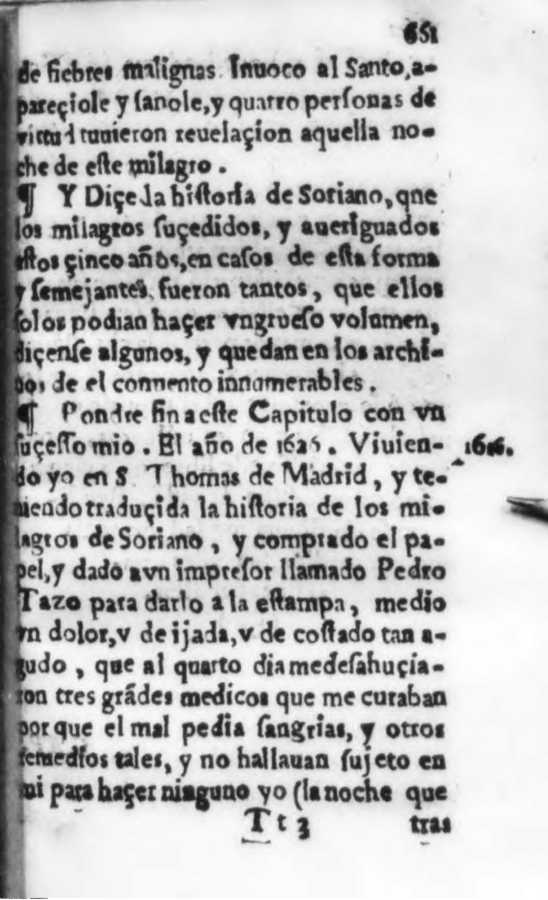 651
de fiebres malignas. Inuoco al Santo, a-
pareçiole y ſanole, y quatro perſonas de
virtud tuuieron reuelaçion aquella no-
che de eſte milagro.
¶ Y Diçe la hiſtoria de Soriano, que
los milagros ſuçedidos, y aueriguados
eſtos çinco años, en caſos de eſta forma
y ſemejantes, fueron tantos, que ellos
ſolos podian haçer vn grueſo volumen,
diçenſe algunos, y quedan en los archi-
uos de el conuento innumerables.
¶ Pondre fin a eſte Capitulo con vn
ſuçeſſo mio. El año de 1626. Viuien-
1626.
do yo en S. Thomas de Madrid, y te-
niendo traduçida la hiſtoria de los mi-
lagros de Soriano, y comprado el pa-
pel, y dado a vn impreſor llamado Pedro
Tazo para darlo a la eſtampa, me dio
vn dolor, v de ijada, v de coſtado tan a-
gudo, que al quarto dia me deſahuçia-
ron tres grãdes medicos que me curaban
por que el mal pedia ſangrias, y otros
remedios tales, y no hallauan ſujeto en
mi para haçer ninguno yo (la noche que
T t 3 tras